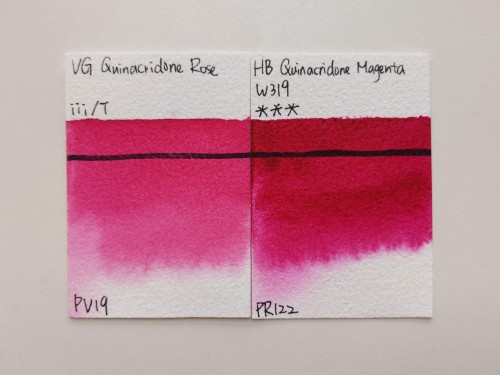 VG Quinacridone Rose
iii/T
PV19
HB Quinacridone Magenta
W319
***
PR122